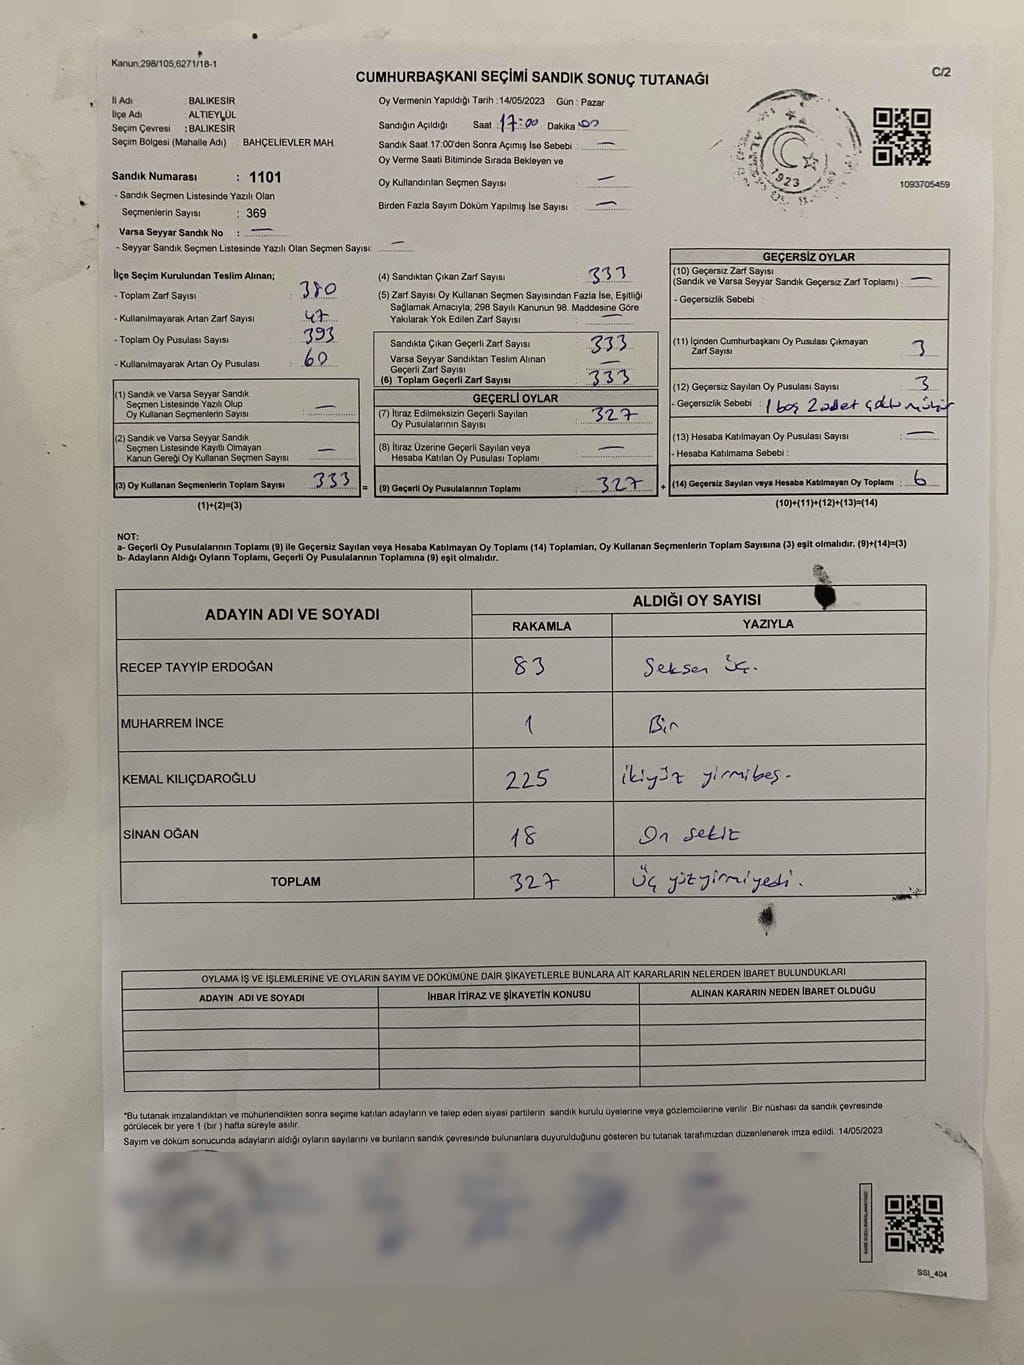 Kanun;298/105,6271/18-1
C/2
CUMHURBAŞKANI SEÇİMİ SANDIK SONUÇ TUTANAĞI
İl Adı : BALIKESİR
İlçe Adı : ALTIEYLÜL
Seçim Çevresi : BALIKESİR
Seçim Bölgesi (Mahalle Adı) : BAHÇELİEVLER MAH.
Sandık Numarası : 1101
- Sandık Seçmen Listesinde Yazılı Olan
Seçmenlerin Sayısı : 369
Varsa Seyyar Sandık No : —
- Seyyar Sandık Seçmen Listesinde Yazılı Olan Seçmen Sayısı: —
Oy Vermenin Yapıldığı Tarih : 14/05/2023 Gün : Pazar
Sandığın Açıldığı Saat 17:00 Dakika 00
Sandık Saat 17:00'den Sonra Açımış İse Sebebi : —
Oy Verme Saati Bitiminde Sırada Bekleyen ve
Oy Kullandırılan Seçmen Sayısı : —
Birden Fazla Sayım Döküm Yapılmış İse Sayısı : —
1923
1093705459
İlçe Seçim Kurulundan Teslim Alınan;
- Toplam Zarf Sayısı : 380
- Kullanılmayarak Artan Zarf Sayısı : 47
- Toplam Oy Pusulası Sayısı : 393
- Kullanılmayarak Artan Oy Pusulası : 60
(1) Sandık ve Varsa Seyyar Sandık
Seçmen Listesinde Yazılı Olup
Oy Kullanan Seçmenlerin Sayısı : —
(2) Sandık ve Varsa Seyyar Sandık
Seçmen Listesinde Kayıtlı Olmayan
Kanun Gereği Oy Kullanan Seçmen Sayısı : —
(3) Oy Kullanan Seçmenlerin Toplam Sayısı : 333 =
(1)+(2)=(3)
(4) Sandıktan Çıkan Zarf Sayısı : 333
(5) Zarf Sayısı Oy Kullanan Seçmen Sayısından Fazla İse, Eşitliği
Sağlamak Amacıyla, 298 Sayılı Kanunun 98. Maddesine Göre
Yakılarak Yok Edilen Zarf Sayısı : —
Sandıkta Çıkan Geçerli Zarf Sayısı : 333
Varsa Seyyar Sandıktan Teslim Alınan
Geçerli Zarf Sayısı : —
(6) Toplam Geçerli Zarf Sayısı : 333
GEÇERLİ OYLAR
(7) İtiraz Edilmeksizin Geçerli Sayılan
Oy Pusulalarının Sayısı : 327
(8) İtiraz Üzerine Geçerli Sayılan veya
Hesaba Katılan Oy Pusulası Toplamı : —
(9) Geçerli Oy Pusulalarının Toplamı : 327 +
GEÇERSİZ OYLAR
(10) Geçersiz Zarf Sayısı
(Sandık ve Varsa Seyyar Sandık Geçersiz Zarf Toplamı) : —
- Geçersizlik Sebebi :
(11) İçinden Cumhurbaşkanı Oy Pusulası Çıkmayan
Zarf Sayısı : 3
(12) Geçersiz Sayılan Oy Pusulası Sayısı : 3
- Geçersizlik Sebebi : 1 boş 2 adet çoklu mühür
(13) Hesaba Katılmayan Oy Pusulası Sayısı : —
- Hesaba Katılmama Sebebi :
(14) Geçersiz Sayılan veya Hesaba Katılmayan Oy Toplamı : 6
(10)+(11)+(12)+(13)=(14)
NOT:
a- Geçerli Oy Pusulalarının Toplamı (9) ile Geçersiz Sayılan veya Hesaba Katılmayan Oy Toplamı (14) Toplamları, Oy Kullanan Seçmenlerin Toplam Sayısına (3) eşit olmalıdır. (9)+(14)=(3)
b- Adayların Aldığı Oyların Toplamı, Geçerli Oy Pusulalarının Toplamına (9) eşit olmalıdır.
ADAYIN ADI VE SOYADI
ALDIĞI OY SAYISI
RAKAMLA YAZIYLA
RECEP TAYYİP ERDOĞAN 83 Seksen üç.
MUHARREM İNCE 1 Bir
KEMAL KILIÇDAROĞLU 225 ikiyüz yirmibeş-
SİNAN OĞAN 18 On sekiz
TOPLAM 327 Üç yüzyirmiyedi.
OYLAMA İŞ VE İŞLEMLERİNE VE OYLARIN SAYIM VE DÖKÜMÜNE DAİR ŞİKAYETLERLE BUNLARA AİT KARARLARIN NELERDEN İBARET BULUNDUKLARI
ADAYIN ADI VE SOYADI İHBAR İTİRAZ VE ŞİKAYETİN KONUSU ALINAN KARARIN NEDEN İBARET OLDUĞU
*Bu tutanak imzalandıktan ve mühürlendikten sonra seçime katılan adayların ve talep eden siyasi partilerin sandık kurulu üyelerine veya gözlemcilerine verilir. Bir nüshası da sandık çevresinde
görülecek bir yere 1 (bir ) hafta süreyle asılır.
Sayım ve döküm sonucunda adayların aldığı oyların sayılarını ve bunların sandık çevresinde bulunanlara duyurulduğunu gösteren bu tutanak tarafımızdan düzenlenerek imza edildi. 14/05/2023
SSI_404